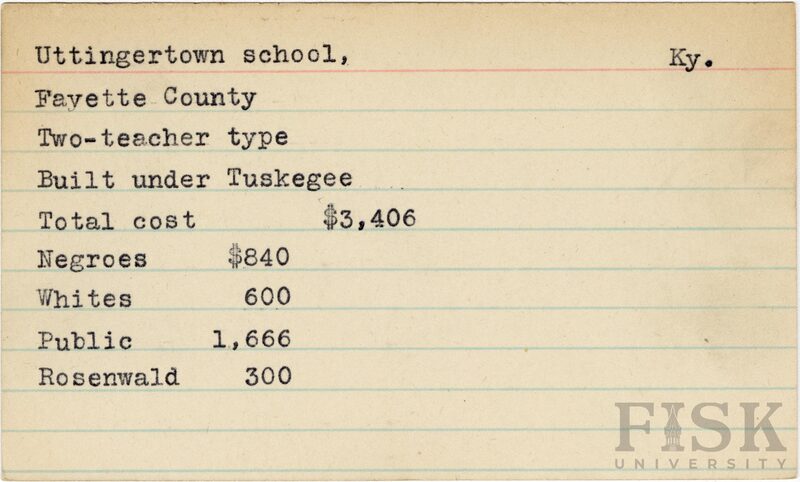 Uttingertown school, Ky.
Fayette County
Two-teacher type
Built under Tuskegee
Total cost $3,406
Negroes $840
Whites 600
Public 1,666
Rosenwald 300
FISK
UNIVERSITY